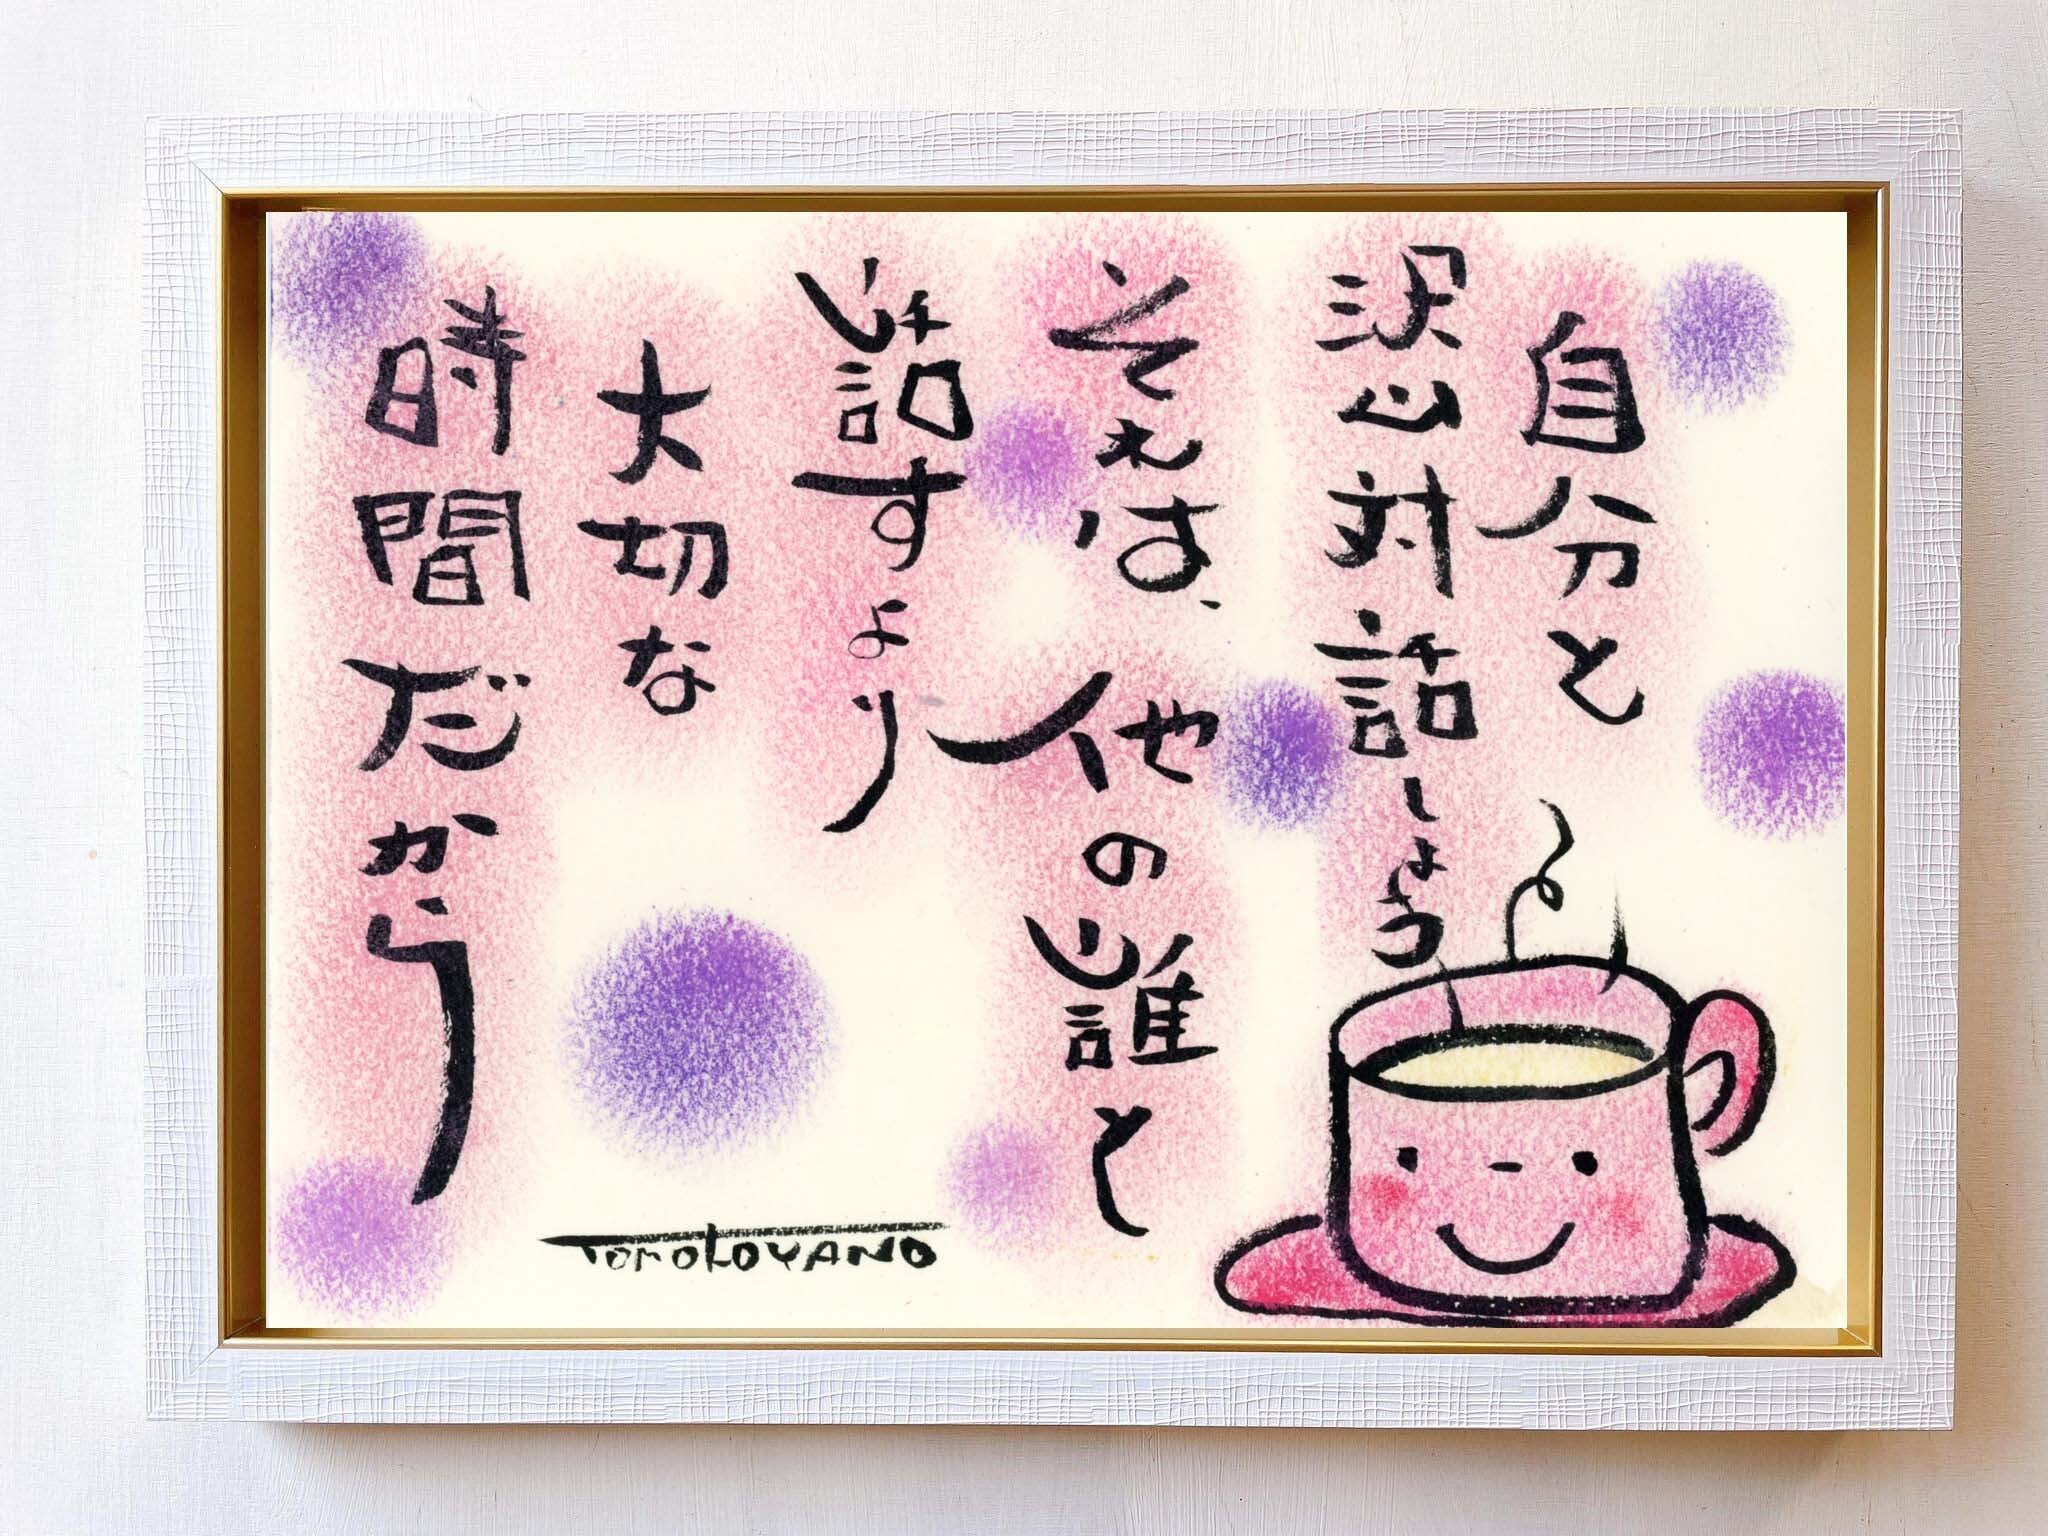 自分と
沢山対話しよう
それは、他の誰と
話すより
大切な
時間だから
TOMOKOYANO